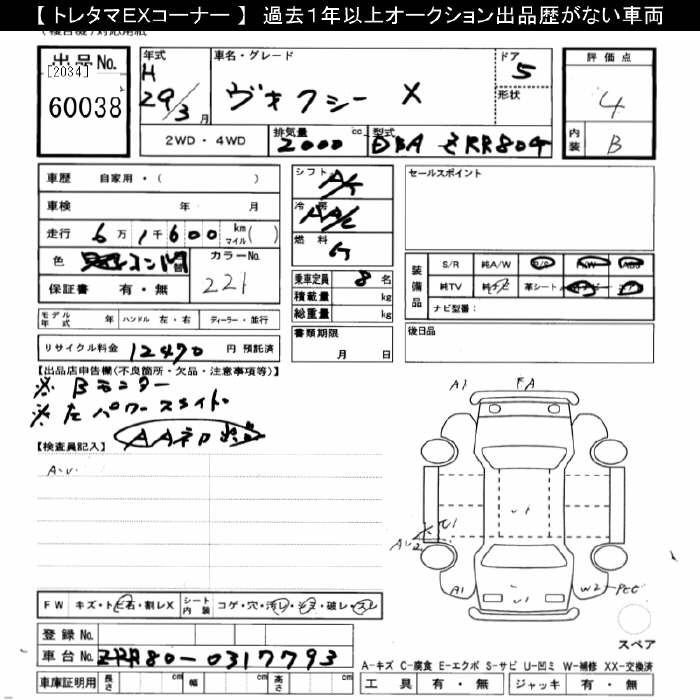 【 トレタマEXコーナー 】 過去1年以上オークション出品歴がない車両
出品No.
[2034]
60038
年式
H
29/3月
車名・グレード
ヴォクシー X
ドア
5
形状
評価点
4
内装
B
2WD・4WD
排気量
2000 cc
型式
DBA ZRR80G
車歴 自家用・( )
車検 年 月
走行 6万1千600 km マイル( )
色
カラーNo.
221
保証書 有・無
シフト
A/T
冷房
AA/C
燃料
G
乗車定員 8名
積載量 kg
総重量 kg
書類期限
月 日
セールスポイント
装備品
S/R 純A/W P/S P/W ABS
純TV 純ナビ 革シート
ナビ型番:
後日品
モデル年式 年 ハンドル 左・右 ディーラー・並行
リサイクル料金 12470 円 預託済
【出品店申告欄(不良箇所・欠品・注意事項等)】
※ Bモニター
※ 左パワースライド
【検査員記入】
A.U.
A1
FA
A1
W2
FW キズ・トビ石・割レX
シート内装 コゲ・穴・汚レ・シミ・破レ・スレ
登録No.
車台No. ZRR80-0317793
車庫証明用 長さ cm 幅 cm 高さ cm
スペア
A-キズ C-腐食 E-エクボ S-サビ U-凹ミ W-補修 XX-交換済
工具 有・無 ジャッキ 有・無